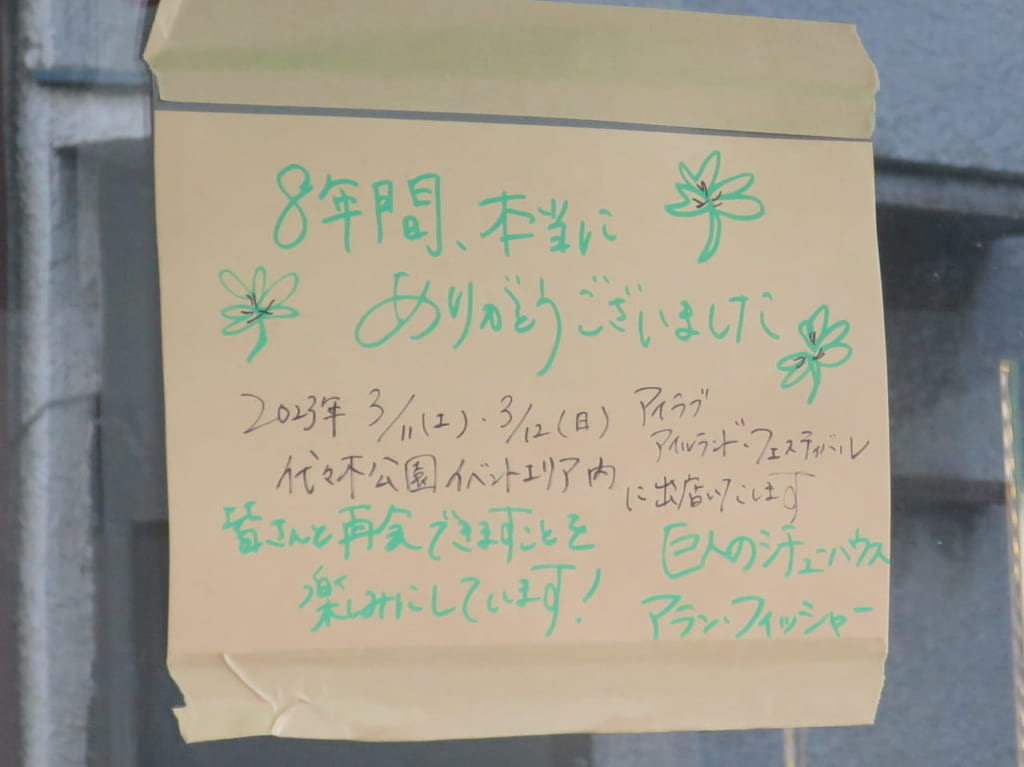 8年間、本当に
ありがとうございました
2023年 3/11(土)・3/12(日)
代々木公園イベントエリア内
アイラブ
アイルランド・フェスティバル
に出店いたします
皆さんと再会できますことを
楽しみにしています!
巨人のシチューハウス
アラン・フィッシャー